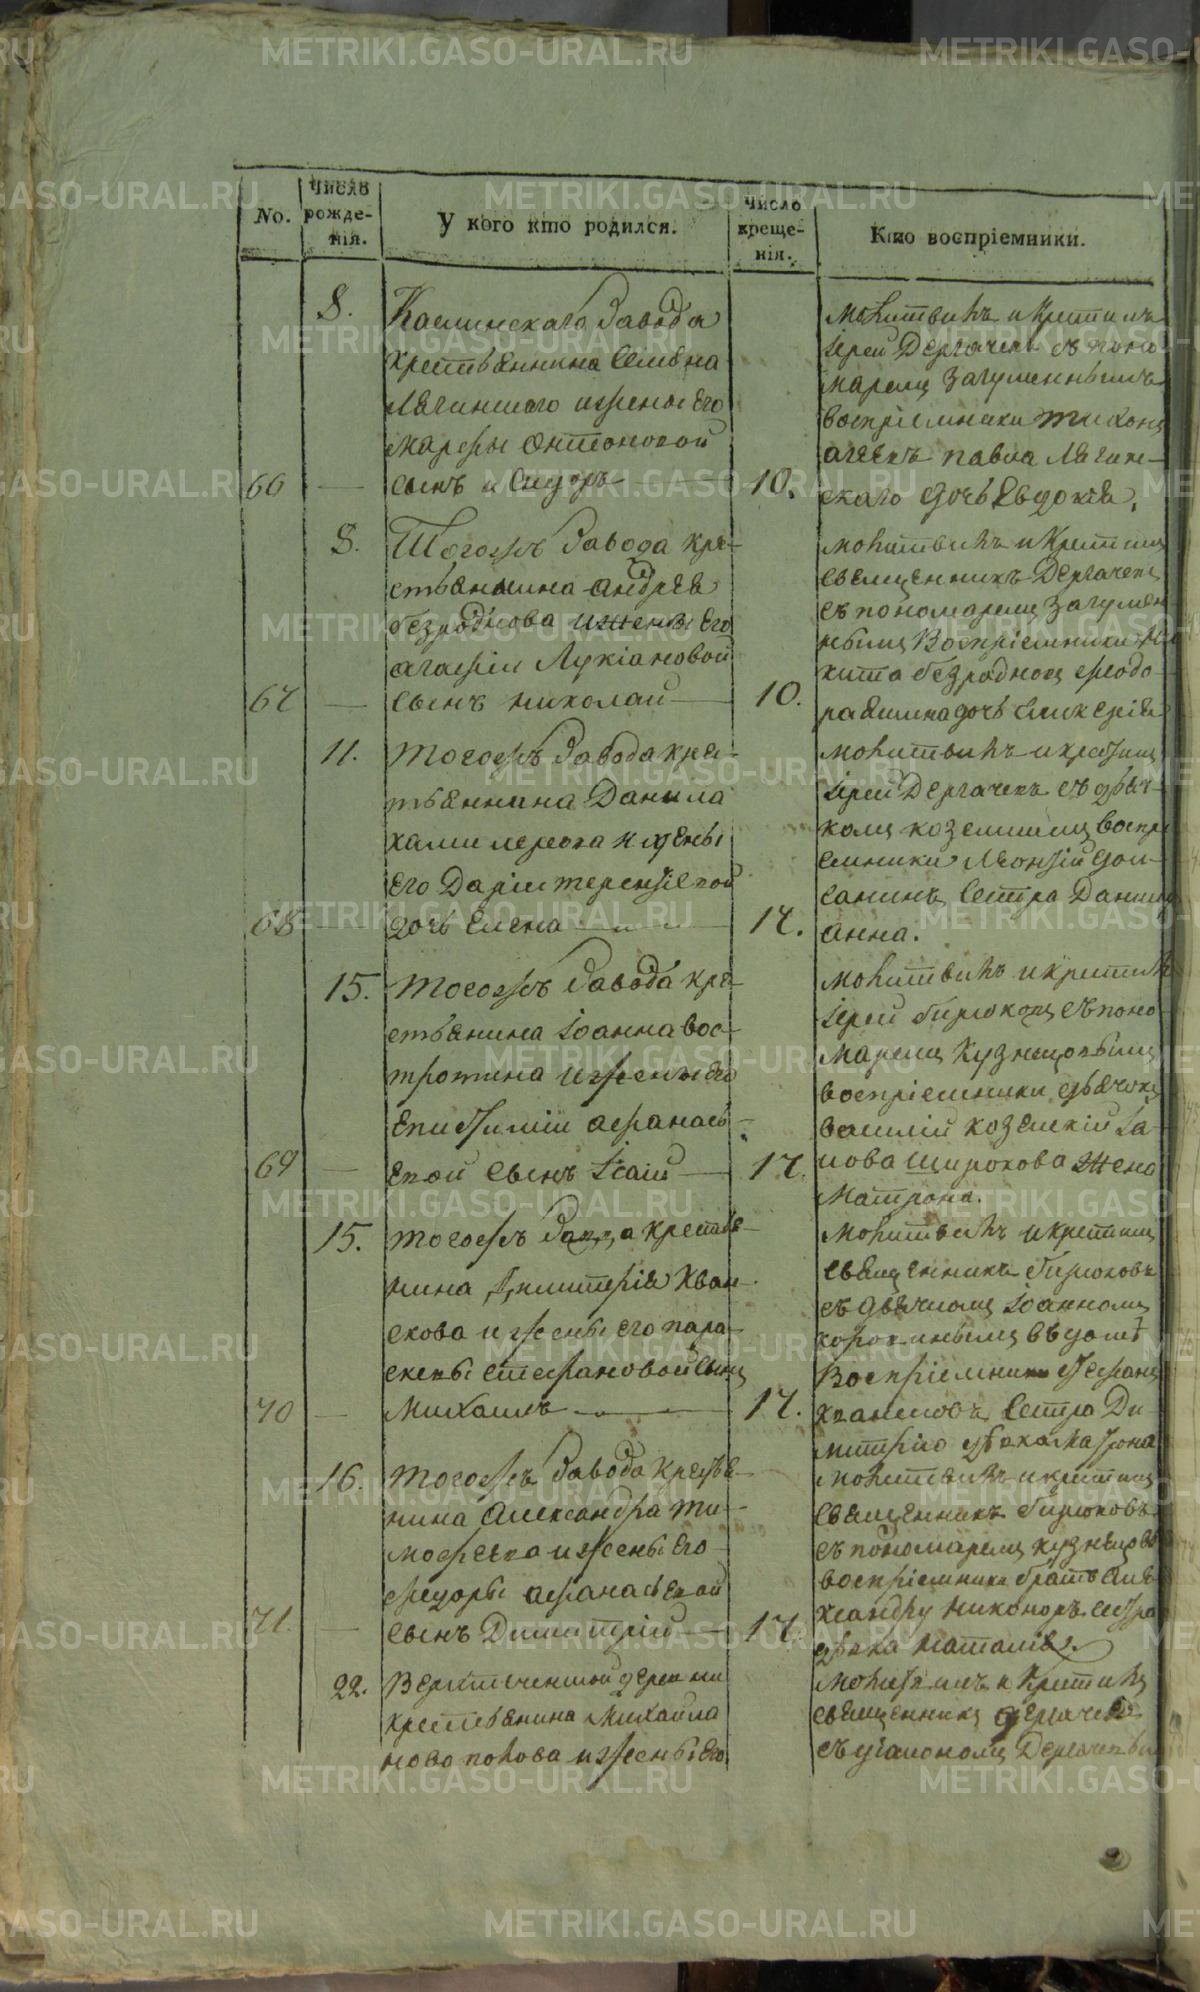 No.
Число рожде-нія.
У кого кто родился.
Число креще-нія.
Кто воспріемники.
8.
Каслинскаго Завода
крестьянина Семена
Лягинскаго и жены Его
Марфы Антоновой
66
сынъ Сидоръ
10.
молитвилъ и Крестилъ
Іерей Дергачевъ съ поно
маремъ Загуменнымъ
воспріемники Тихонъ
павла Лягин-
скаго дочь Евдокія.
8.
Тогожъ Завода кре-
стьянина Андрея
безроднова и жены Его
Агафіи Лукіановой
67
сынъ Николай
10.
молитвилъ и Крестилъ
священникъ Дергачевъ
съ пономаремъ Загумен
нымъ Воспріемники Ни
кита безродновъ Феодо
дочь Гликерія
11.
Тогожъ Завода кре-
стьянина Данила
и жены
Его Даріи терентьевой
68
дочь Елена
17.
молитвилъ и крестилъ
Іерей Дергачевъ съ дьяч-
комъ козельскимъ воспрі
емники Леонтій
сестра Данила
Анна.
15.
Тогожъ Завода кре-
стьянина Іоанна Вос-
тротина и жены его
Епистиміи Афанась-
69
евой сынъ Ісаій
17.
молитвилъ и крестилъ
Іерей бирюковъ съ поно
маремъ Кузнецовымъ
воспріемники дьячокъ
Василій козельскій Іа-
кова Широкова Жена
Матрона.
15.
Тогожъ Завода крестья
нина Димитрія Хван-
скова и жены его пара-
скевы стефановой сынъ
70
Михаилъ
17.
молитвилъ и крестилъ
священникъ бирюковъ
съ дьячкомъ Іоанномъ
коровинымъ въ домѣ
Воспріемники Стефанъ
сестра Ди
митрію дѣвка Матрона
16.
Тогожъ Завода крестья
нина Александра Ти-
мофеева и жены Его
Федоры Афанасьевой
71.
сынъ Димитрій
17
молитвилъ и крестилъ
священникъ бирюковъ
съ пономаремъ кузнецовы
воспріемники братъ Але
ксандру Никоноръ сестра
дѣвка Наталія.
22.
деревни
крестьянина Михаила
новопопова и жены Его
молитвилъ и Крестилъ
священникъ дергачевъ
съ діакономъ Дергачевы
METRIKI.GASO-URAL.RU